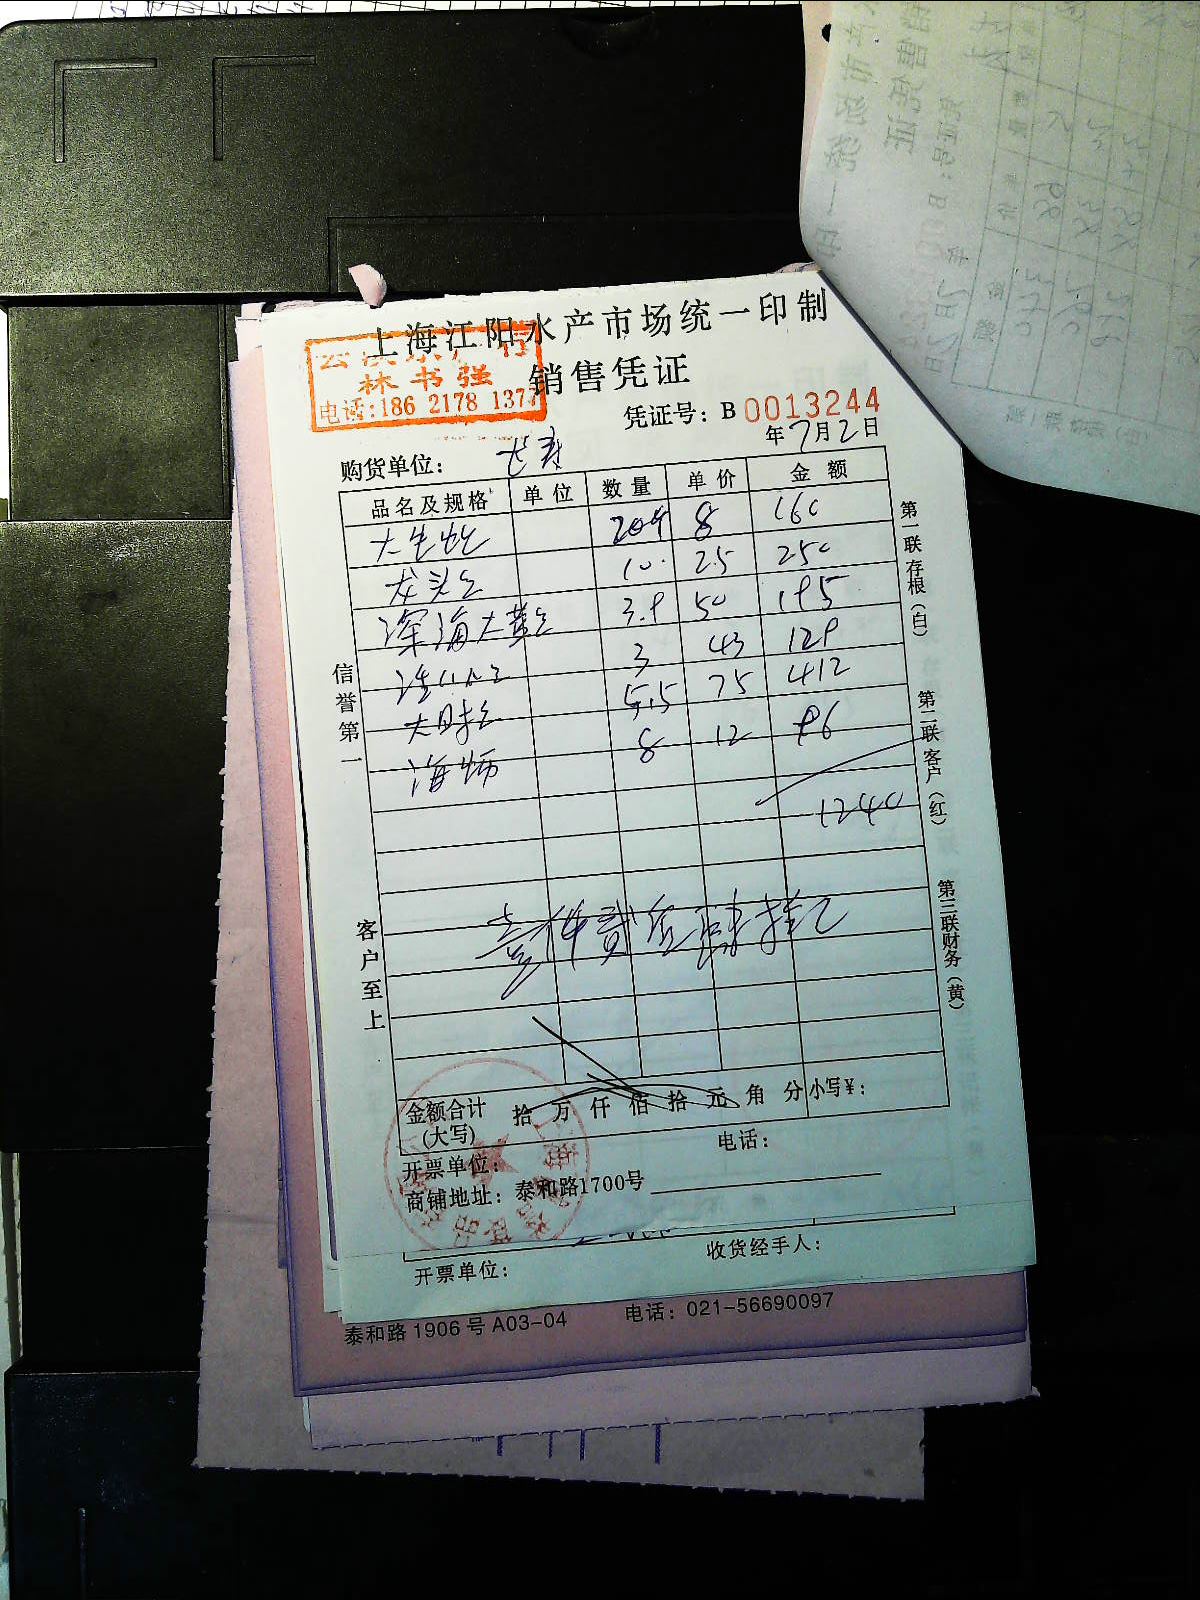 上海江阳水产市场统一印制
林书强
销售凭证
电话:186 2178 137
凭证号: B 0013244
年7月2日
购货单位:
品名及规格 单位 数量 单价 金额
大生蚝 20个 8 160
龙头鱼 10 25 250
深海大黄鱼 3.9 50 195
3 43 129
5.5 75 412
海蛎 8 12 96
1240
壹仟贰佰肆拾元
信誉第一
客户至上
第一联存根(白)
第二联客户(红)
第三联财务(黄)
金额合计(大写) 拾 万 仟 佰 拾 元 角 分 小写¥:
开票单位: 电话:
商铺地址: 泰和路1700号
开票单位: 收货经手人:
泰和路1906号A03-04 电话: 021-56690097